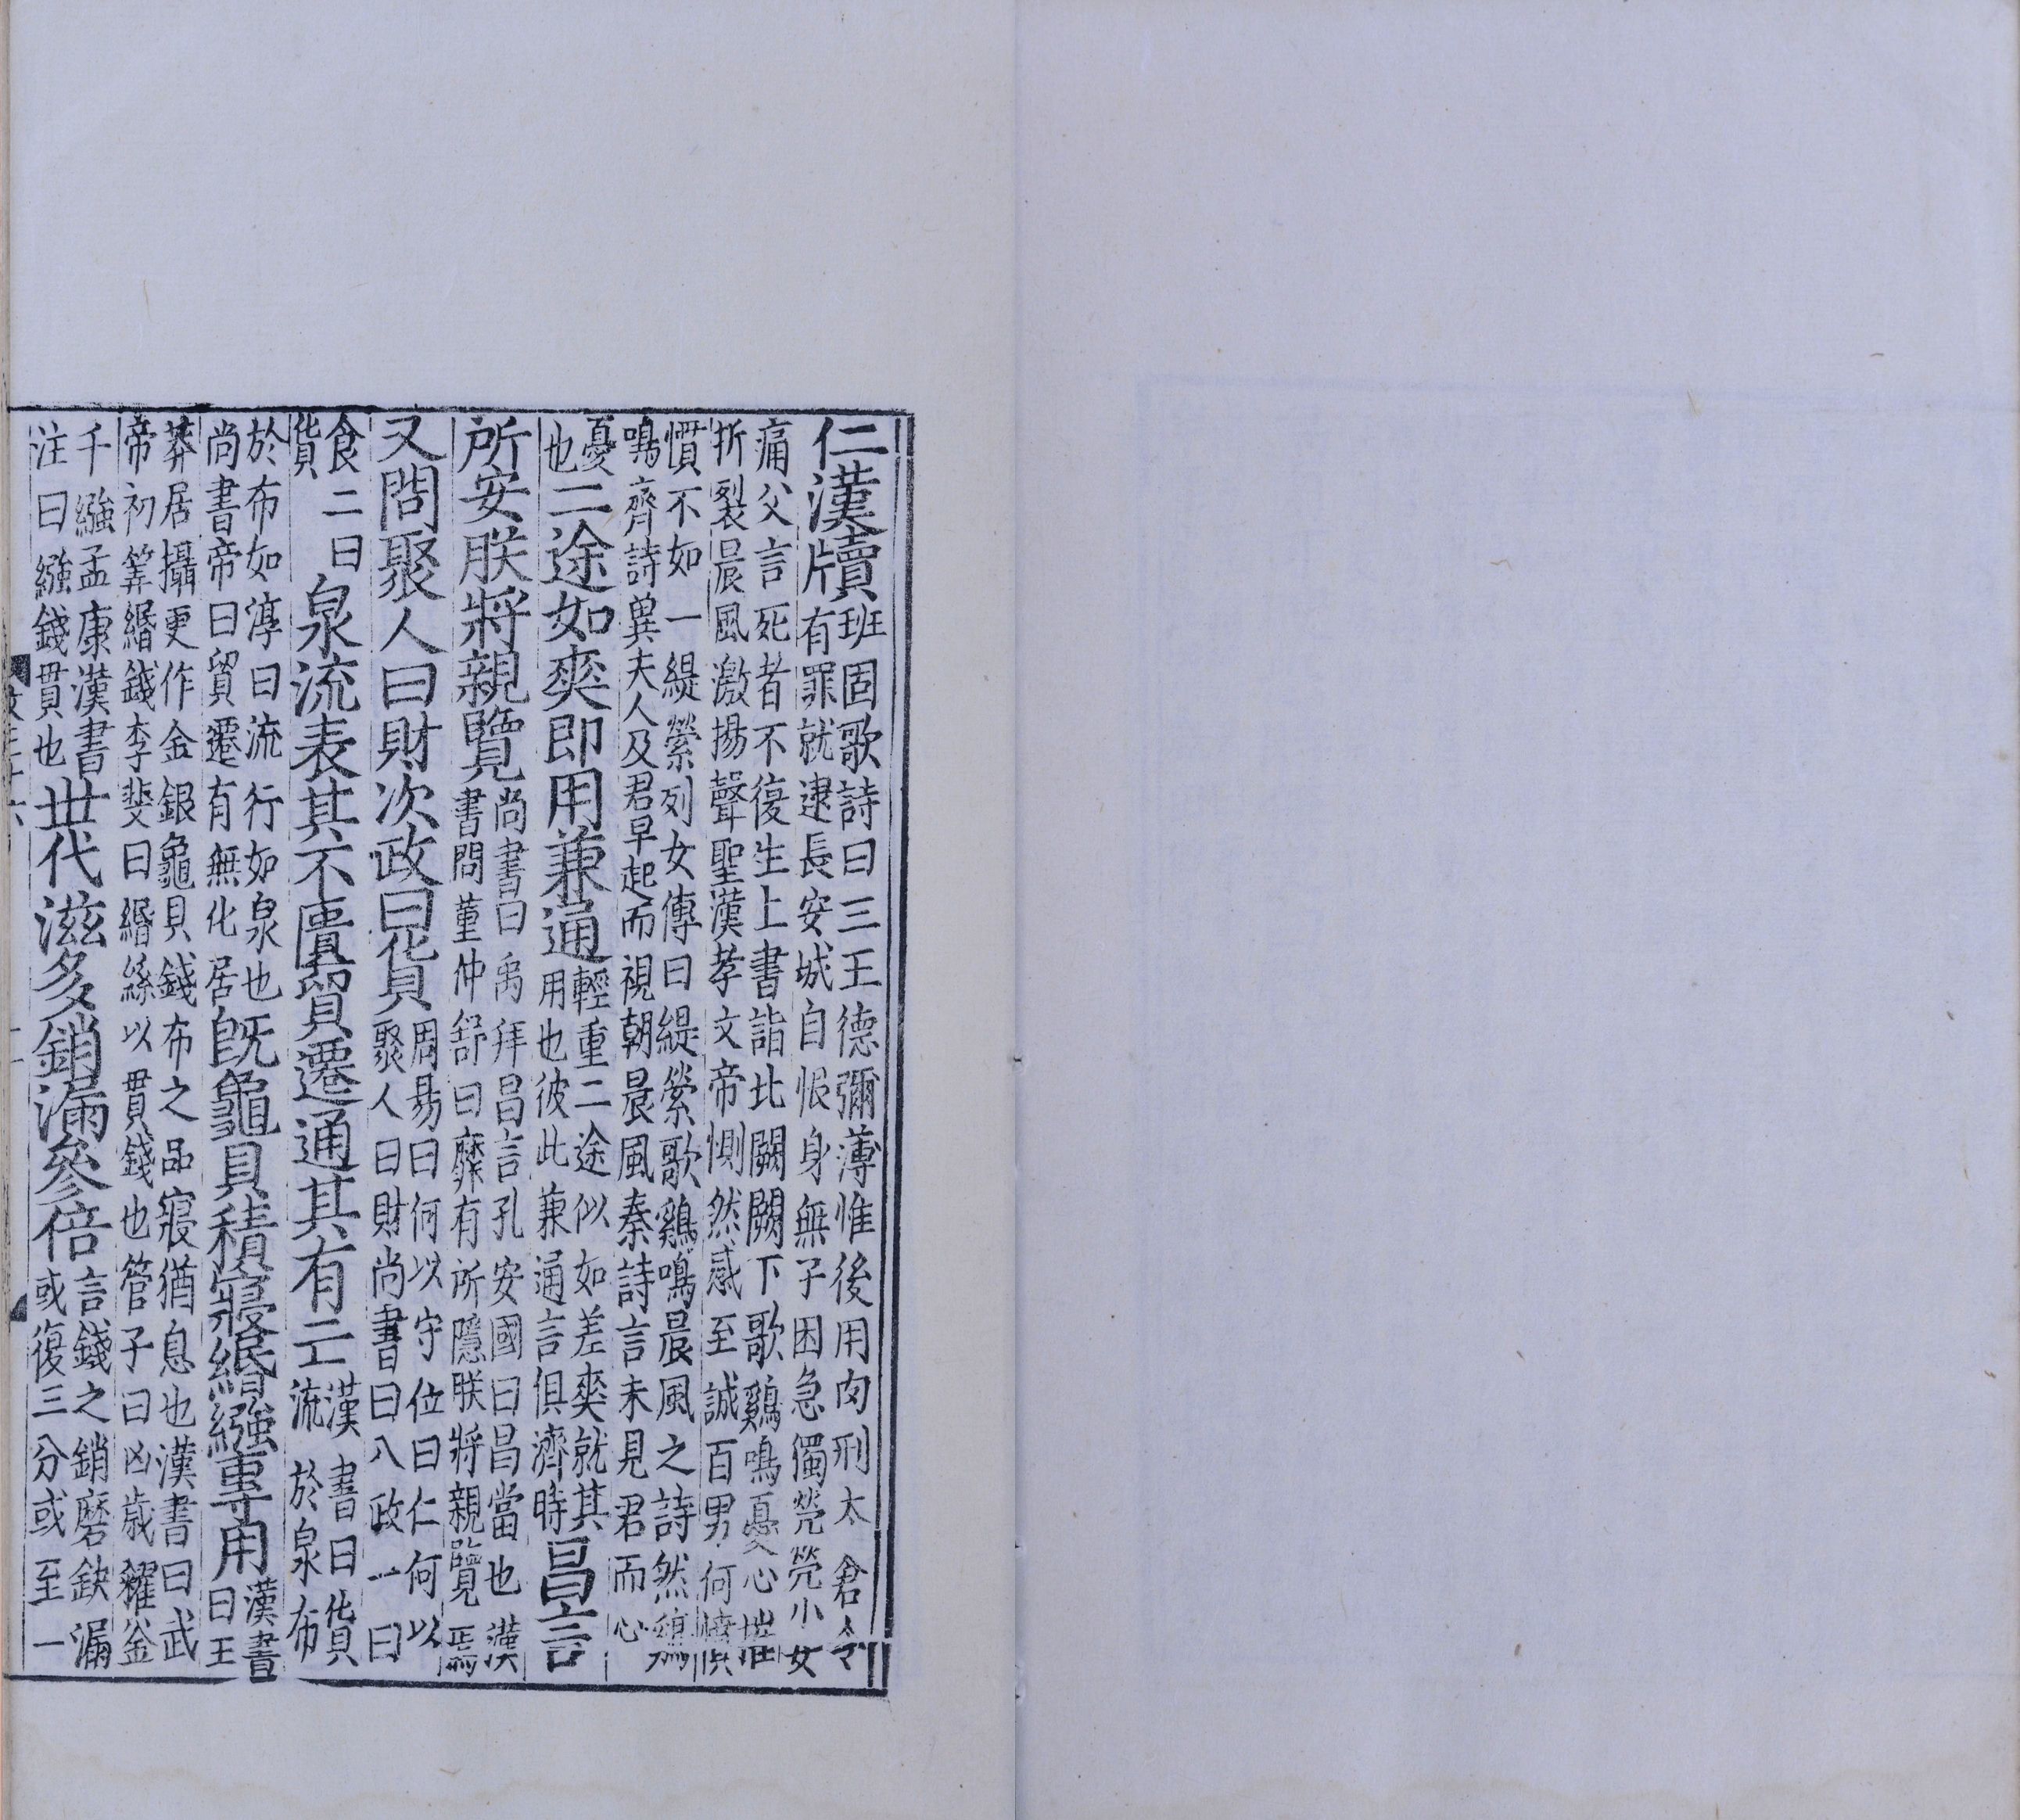 仁漢牘班固歌詩曰三王德彌薄惟後用肉刑太倉令
有罪就逮長安城自恨身無子困急獨煢煢小女
痛父言死者不復生上書詣北闕闕下歌鷄鳴憂心摧
折裂晨風激揚聲聖漢孝文帝惻然感至誠百男何憒
憒不如一緹縈列女傳曰緹縈歌鷄鳴晨風之詩然鷄
鳴齊詩兾夫人及君早起而視朝晨風秦詩言未見君而心
憂
也
二途如爽即用兼通輕重二途似如差爽就其
用也彼此兼通言俱濟時
昌言
所安朕將親覽尚書曰禹拜昌言孔安國曰昌當也漢
書問董仲舒曰靡有所隱朕將親覽焉
又問聚人曰財次政曰貨周易曰何以守位曰仁何以
聚人曰財尚書曰八政一曰
食二曰
貨
泉流表其不匱貿遷通其有亡漢書曰貨
流於泉布
於布如淳曰流行如泉也
尚書帝曰貿遷有無化居
既龜貝積寢緡繦專用漢書
曰王
莽居攝更作金銀龜貝錢布之品寢猶息也漢書曰武
帝初筭緡錢李斐曰緡絲以貫錢也管子曰凶歲糴釜
千繦孟康漢書
注曰繦錢貫也
世代滋多銷漏參倍言錢之銷磨鈌漏
或復三分或至一